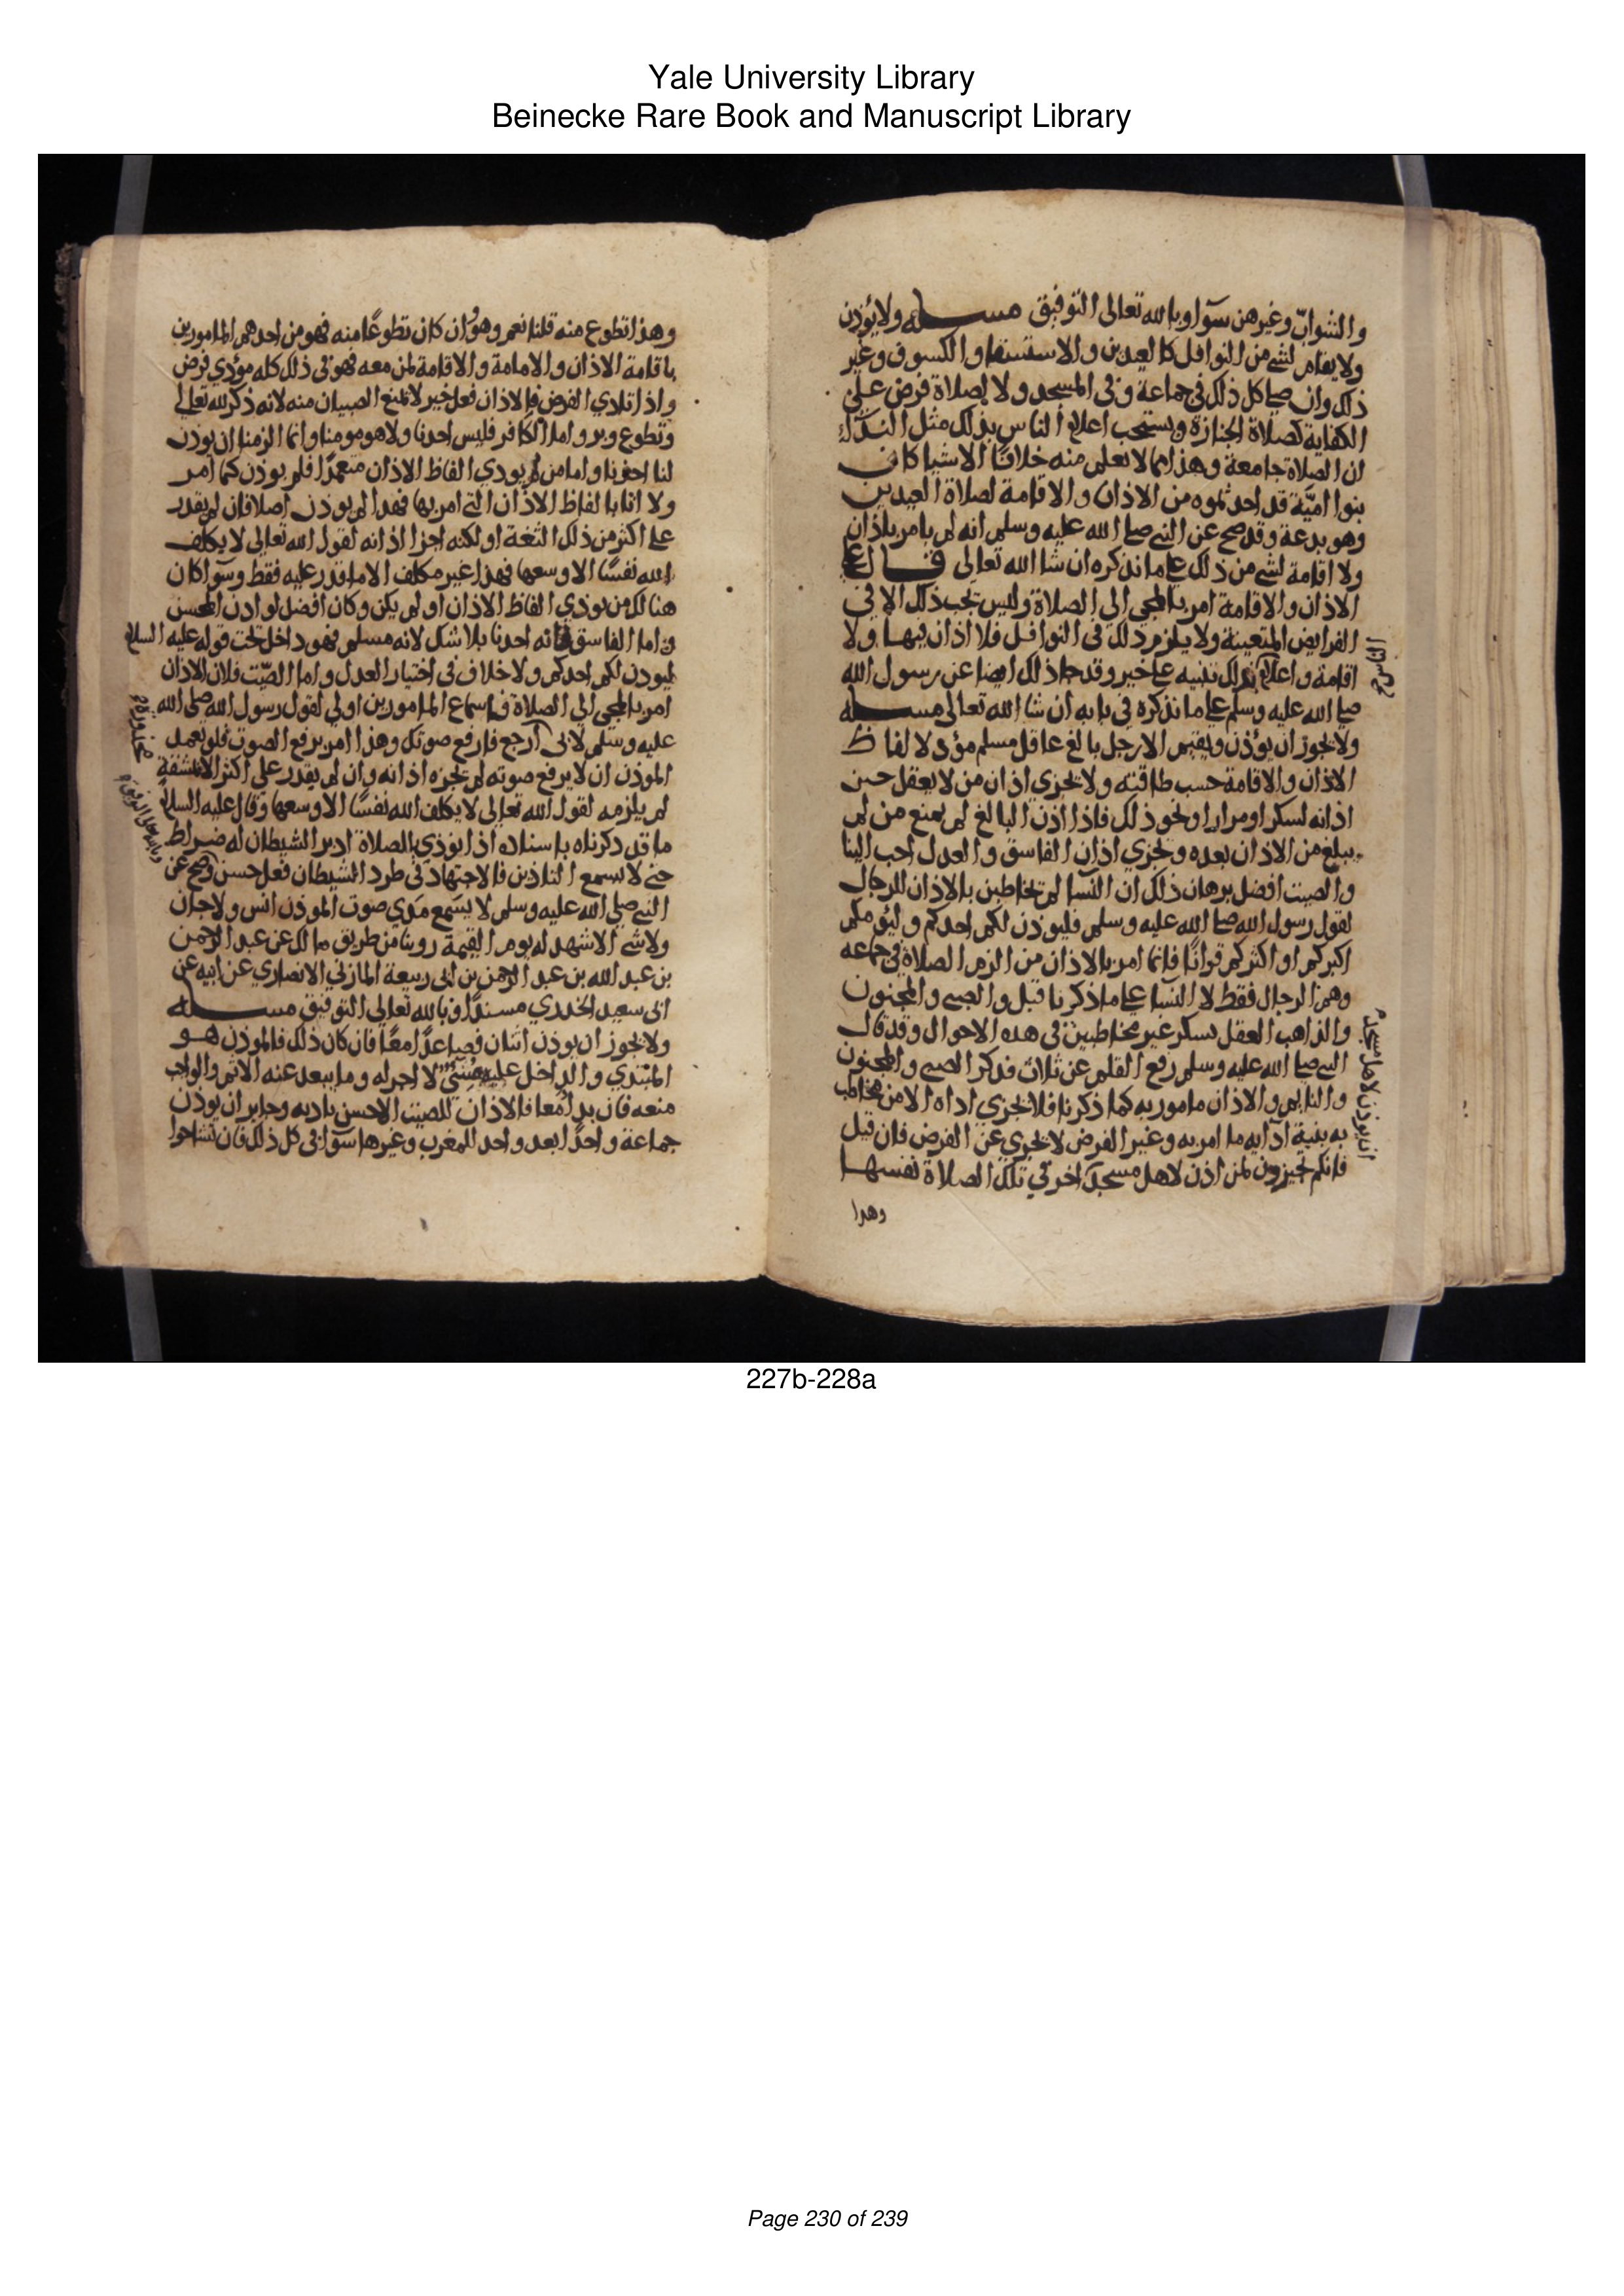 Yale University Library
Beinecke Rare Book and Manuscript Library
والشواب وغيرهن سوآ وبالله تعالى التوفيق مسله ولا يؤذن
ولا يقام لشي من النوافل كالعيدين والاستسقا والكسوف وغير
ذلك وان صلى كل ذلك في جماعة وفي المسجد ولا لصلاة فرض على
الكفاية كصلاة الجنازة ويستحب اعلام الناس بذلك مثل الندآء
ان الصلاة جامعة وهذا مما لا نعلم منه خلافا الا شيا كان
بنوا امية قد احدثوه من الاذان والاقامة لصلاة العيدين
وهو بدعة وقد صح عن النبي صلى الله عليه وسلم انه لم يامر باذان
ولا اقامة لشي من ذلك على ما نذكره ان شا الله تعالى قال علي
الاذان والاقامة امر بالمجي الى الصلاة وليس تجب ذلك الا في
الفرايض المتعينة ولا يلزم ذلك في النوافل فلا اذان فيها ولا
اقامة واعلام بذلك تنبيه على خير وقد جا ذلك ايضا عن رسول الله
صلى الله عليه وسلم على ما نذكره في بابه ان شا الله تعالى مسله
ولا يجوز ان يؤذن ويقيم الا رجل بالغ عاقل مسلم مؤد لالفاظ
الاذان والاقامة حسب طاقته ولا يجزي اذان من لا يعقل حين
اذانه لسكر او مرار او نحو ذلك فاذا اذن البالغ لم يمنع من لم
يبلغ من الاذان بعده ويجزي اذان الفاسق والعدل احب الينا
والصيت افضل برهان ذلك ان النسا لم تخاطبن بالاذان للرجال
لقول رسول الله صلى الله عليه وسلم فليوذن لكم احدكم وليؤمكم
اكبركم او اكثركم قرانا فانما امر بالاذان من الزم الصلاة في جماعه
وهم الرجال فقط لا النسا على ما ذكرنا قبل والصبي والمجنون
والذاهب العقل بسكر غير مخاطبين في هذه الاحوال وقد قال
النبي صلى الله عليه وسلم رفع القلم عن ثلاث فذكر الصبي والمجنون
والنايم والاذان مامور به كما ذكرنا فلا يجزي اداه الا من مخاطب
به بنية ادايه ما امر به وغير الفرض لا يجزي عن الفرض فان قيل
فانكم تجيزون لمن اذن لاهل مسجد آخر في تلك الصلاة نفسها
وهدا
وهذا تطوع منه قلنا نعم وهو وان كان تطوعا منه فهو من احدهم المامورين
باقامة الاذان والامامة والاقامة لمن معه فهو في ذلك كله مؤدي فرض
واذا تادي الفرض فالاذان فعل خير لا تمنع الصبيان منه لانه ذكر لله تعالى
وتطوع وبر واما الكافر فليس احدنا ولا هو مومنا وانما الزمنا ان يوذن
لنا احدنا واما من لم يودي الفاظ الاذان متعمدا فلم يوذن كما امر
ولا اتا بالفاظ الاذان التي امر بها فهدا لم يوذن اصلا فان لم يقدر
على اكثر من ذلك لثغة او لكنه اجزا اذانه لقول الله تعالى لا يكلف
الله نفسًا الا وسعها فهذا غير مكلف الا ما قدر عليه فقط وسوآ كان
هنالك من يودي الفاظ الاذان او لم يكن وكان افضل لو اذن المحسن
واما الفاسق فانه احدنا بلا شك لانه مسلم فهو داخل تحت قوله عليه السلام
ليوذن لكم احدكم ولا خلاف في اختيار العدل واما الصيت فلان الاذان
امر بالمجي الى الصلاة فاسماع المامورين اولى لقول رسول الله صلى الله
عليه وسلم لابي محذورة ارجع فارفع صوتك وهذا امر برفع الصوت فلو تعمد
الموذن ان لا يرفع صوته لم تجزه اذانه وان لم يقدر على اكثر الا بمشقة
لم يلزمه لقول الله تعالى لا يكلف الله نفسًا الا وسعها وقال عليه السلام
ما قد ذكرناه باسناده اذا نودي بالصلاة ادبر الشيطان له ضراط
حتى لا يسمع التاذين فالاجتهاد في طرد الشيطان فعل حسن وصح عن
النبي صلى الله عليه وسلم لا يسمع مدي صوت الموذن انس ولا جان
ولا شي الا شهد له يوم القيمة روينا من طريق مالك عن عبد الرحمن
بن عبد الله بن عبد الرحمن بن ابي ربيعة المازني الانصاري عن ابيه عن
ابي سعيد الخدري مسندا وبالله تعالى التوفيق مسله
ولا يجوز ان يوذن اثنان فصاعدًا معًا فان كان ذلك فالموذن هو
المبتدي والداخل عليه مسئ لا اجر له وما يبعد عنه الاثم والواجب
منعه فان بدا معا فالاذان للصيت الاحسن تاديه وجايز ان يوذن
جماعة واحدًا بعد واحد للمغرب وغيرها سوآ في كل ذلك فان تشاحوا
227b-228a
Page 230 of 239